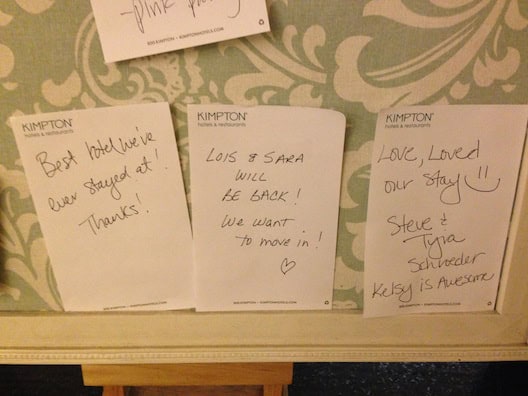 -pink
800.KIMPTON • KIMPTONHOTELS.COM
KIMPTON
hotels & restaurants
Best hotel we've
ever stayed at!
Thanks!
800.KIMPTON • KIMPTONHOTELS.COM
KIMPTON
hotels & restaurants
LOIS & SARA
WILL
BE BACK!
WE WANT
TO MOVE IN!
800.KIMPTON • KIMPTONHOTELS.COM
KIMPTON
hotels & restaurants
Love, Loved
our stay
Steve &
Tyra
Schroeder
Kelsy is Awesome
800.KIMPTON • KIMPTONHOTELS.COM